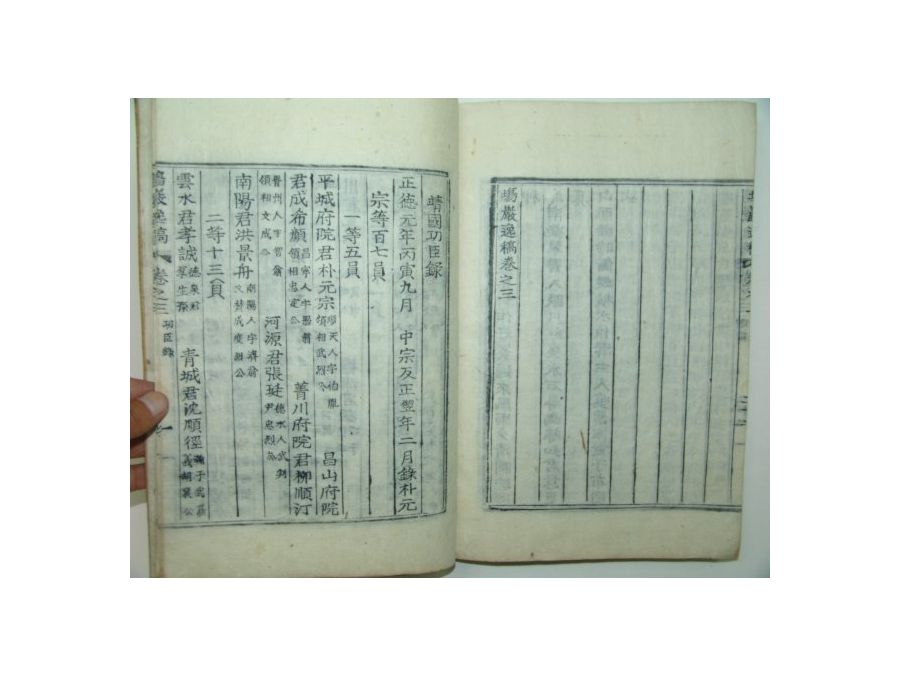 塢巖逸稿卷之二
靖國功臣錄
正德元年丙寅九月 中宗反正翌年二月錄朴元
宗等百七員
一等五員
平城府院君朴元宗 順天人字伯胤 領相武烈公 昌山府院
君成希顔 昌寧人字愚翁 領相忠定公 菁川府院君柳順汀
晋州人字智翁 領相文成公 河源君張珽 德水人武判 尹忠烈公
南陽君洪景舟 南陽人字濟翁 文贊成度烈公
二等十三員
雲水君孝誠 德泉君 孝生孫 青城君沈順徑 子武 襄公
巖逸稿 卷之三 功臣錄